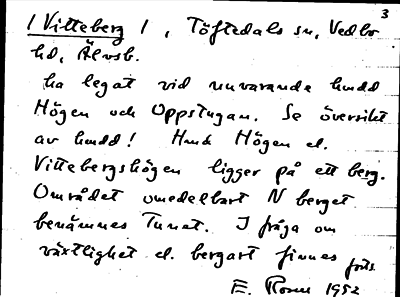 3
/ Vitteberg / , Töftedals sn, Vedbo
hd, Älvsb.
ha legat vid nuvarande hmdd
Högen och Oppstugan. Se översikt
av hmdd! Hmd Högen el.
Vittebergshögen ligger på ett berg.
Området omedelbart N berget
benämnes Tunat. I fråga om
växtlighet el. bergart finnes forts.
E. Rosen 1952